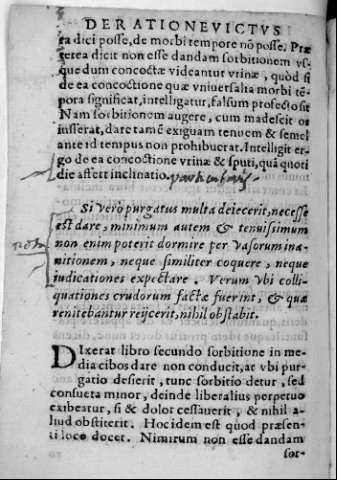 DE RATIONE VICTVS
ea dici posse, de morbi tempore nō posse. Præ
terea dicit non esse dandam sorbitionem vs-
que dum concoctæ videantur vrinæ, quòd si
de ea concoctione quæ vniuersalia morbi tē-
pora significat, intelligatur, falsum profectò sit
Nam sorbitionem augere, cum madescit os
iusserat, dare tamē exiguam tenuem & semel
ante id tempus non prohibuerat. Intelligit er-
go de ea concoctione vrinæ & sputi, quā quoti
die affert inclinatio.
Si verò purgatus multa deiecerit, necesse
est dare, minimum autem & tenuissimum
non enim poterit dormire per vasorum ina-
nitionem, neque similiter coquere, neque
iudicationes expectare. Verum vbi colli-
quationes crudorum factæ fuerint, & quæ
renitebantur reijcerit, nihil obstabit.
DIxerat libro secundo sorbitione in me-
dia cibos dare non conducit, at vbi pur-
gatio desierit, tunc sorbitio detur, sed
consueta minor, deinde liberalius perpetuo
exibeatur, si & dolor cessauerit, & nihil a-
liud obstiterit. Hoc idem est quod præsen-
ti loco docet. Nimirum non esse dandam
sor-